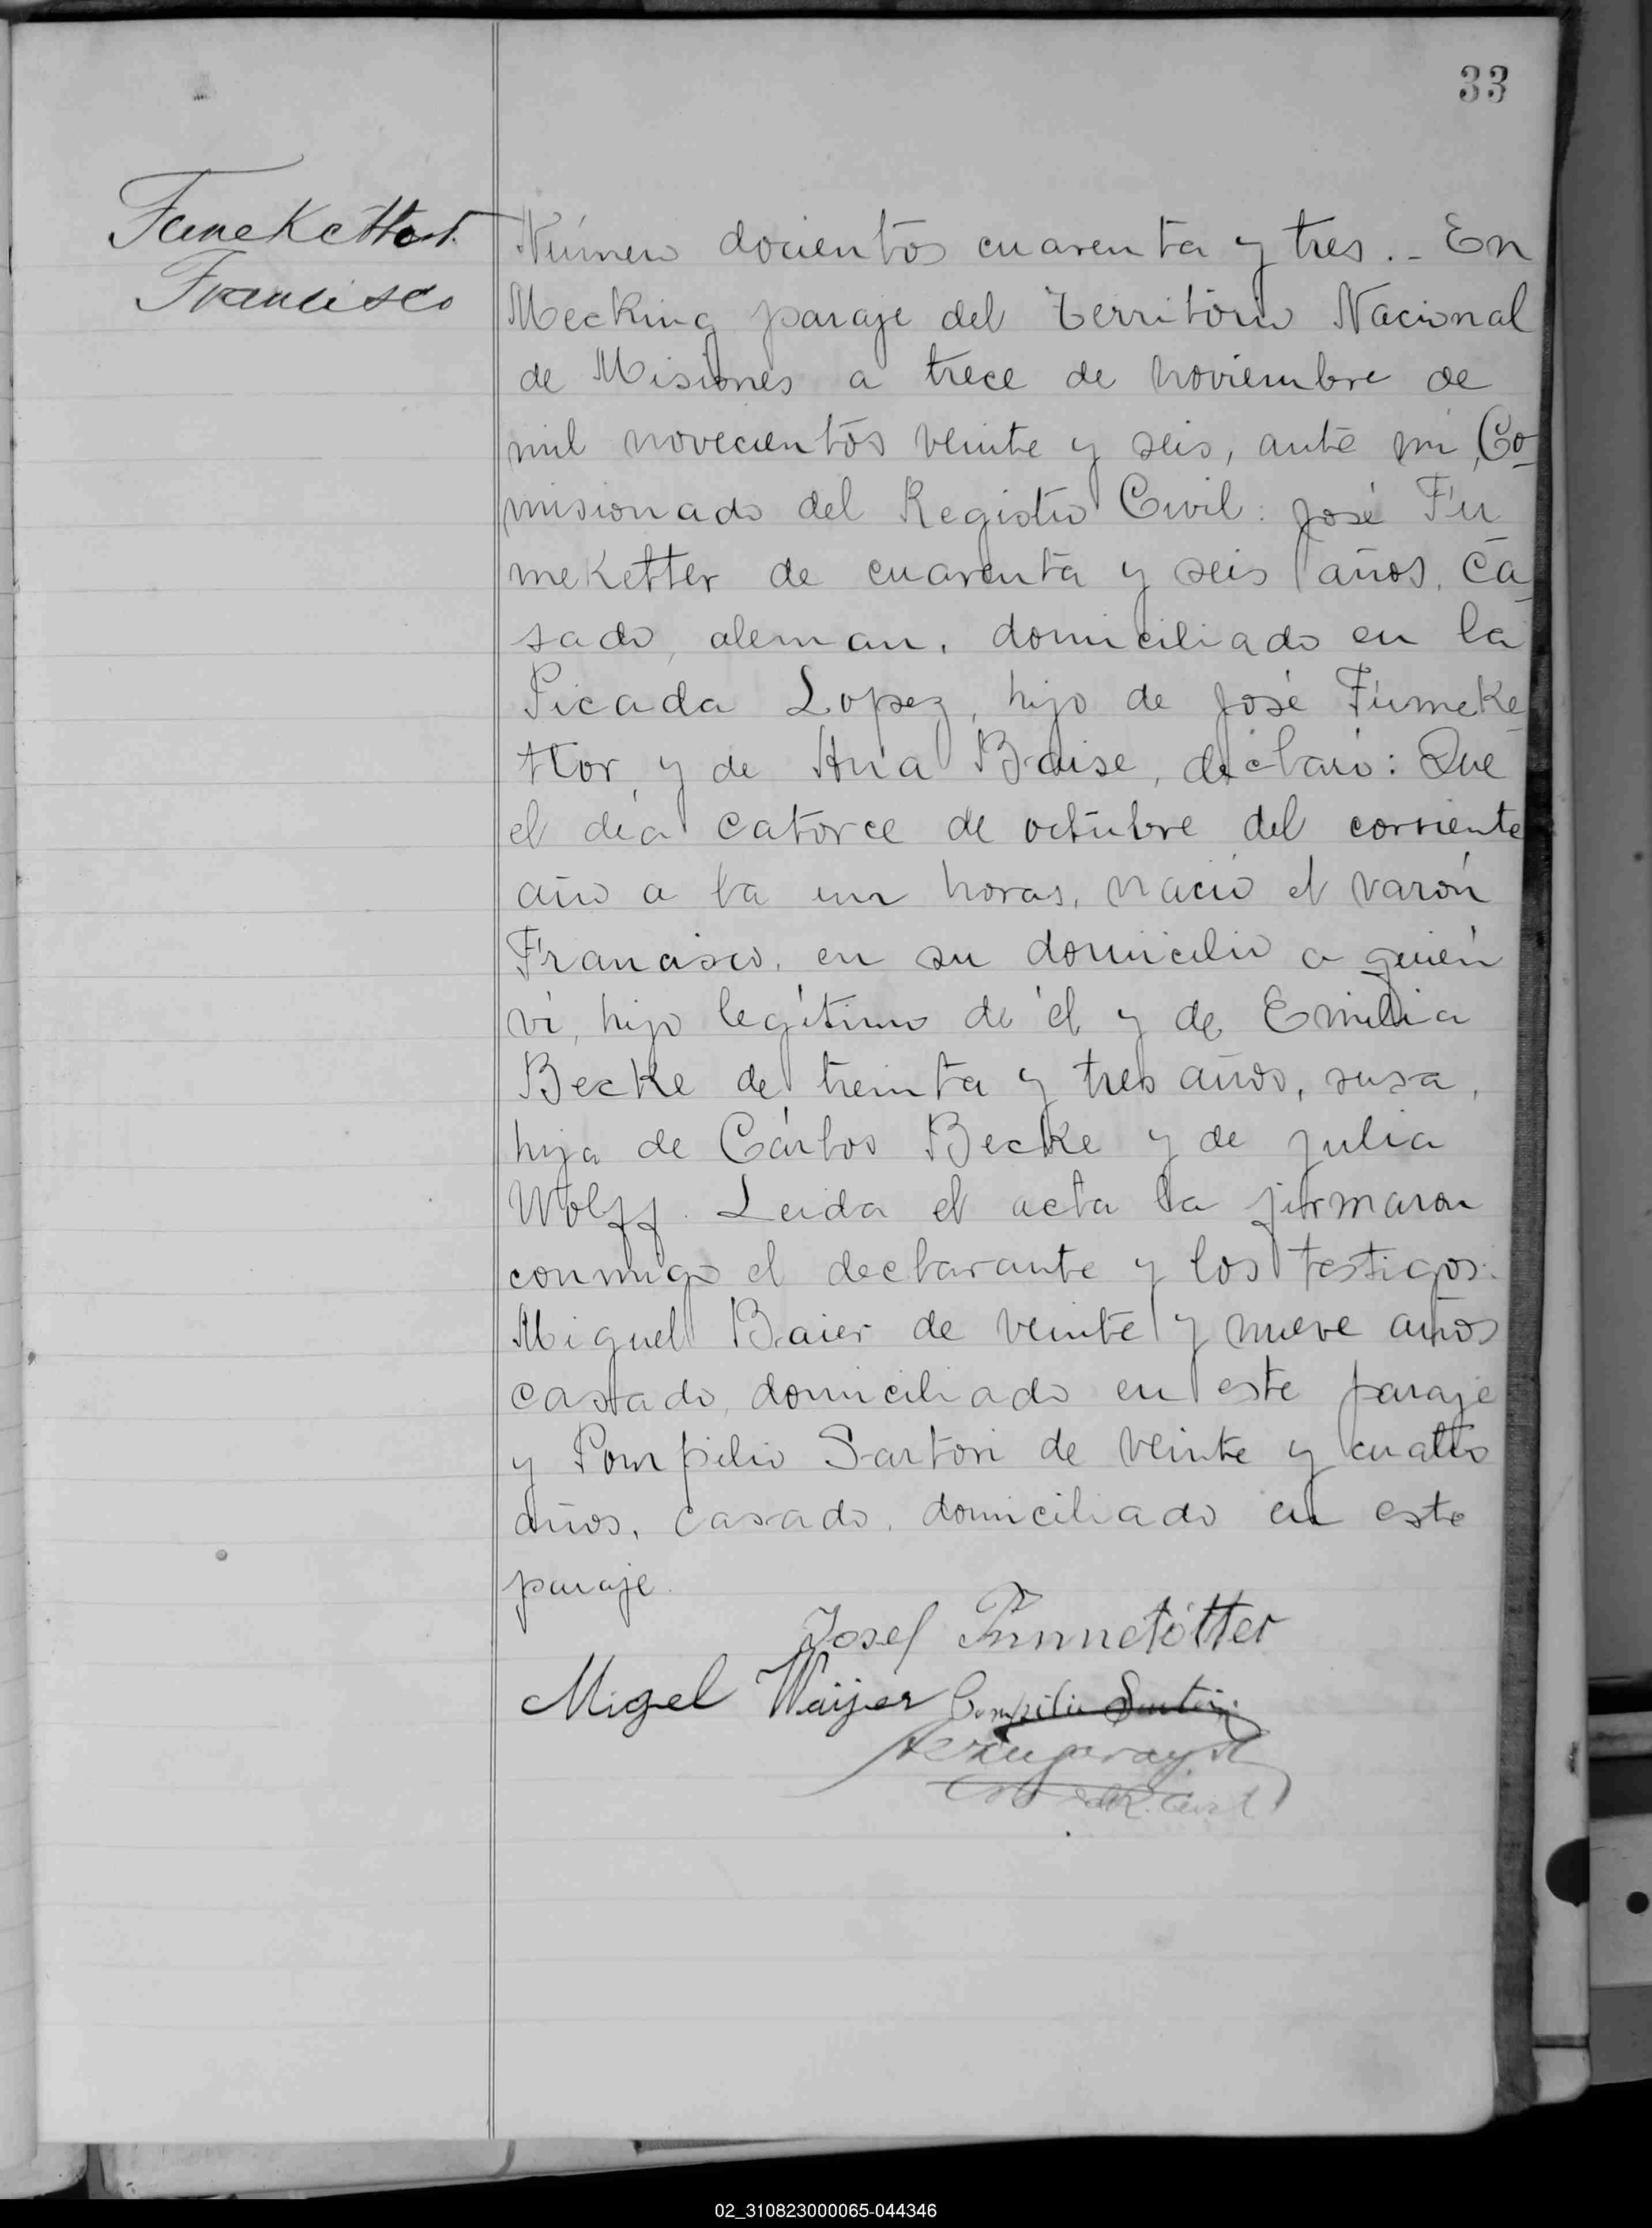 33
Francisco
Número docientos cuarenta y tres.- En
Mecking paraje del Territorio Nacional
de Misiones a trece de noviembre de
mil novecientos veinte y seis, ante mi, Co-
misionado del Registro Civil: José Fu
meketter de cuarenta y seis años, ca-
sado, aleman, domiciliado en la
Picada Lopez, hijo de José Fumeke-
tter y de Ana Baise, declaró: Que
el día catorce de octubre del corriente
año a la un horas, nació el varón
Francisco, en su domicilio a quién
ví, hijo legítimo de él y de Emilia
Becke de treinta y tres años, rusa,
hija de Cárlos Becke y de Julia
Wolff. Leida el acta la firmaron
conmigo el declarante y los testigos:
Miguel Baier de veinte y nueve años
casado, domiciliado en este paraje
y Pompilio Sartori de veinte y cuatro
años, casado, domiciliado en este
paraje.
Josef
Migel Waijer Pompilio Sartori
02_310823000065-044346